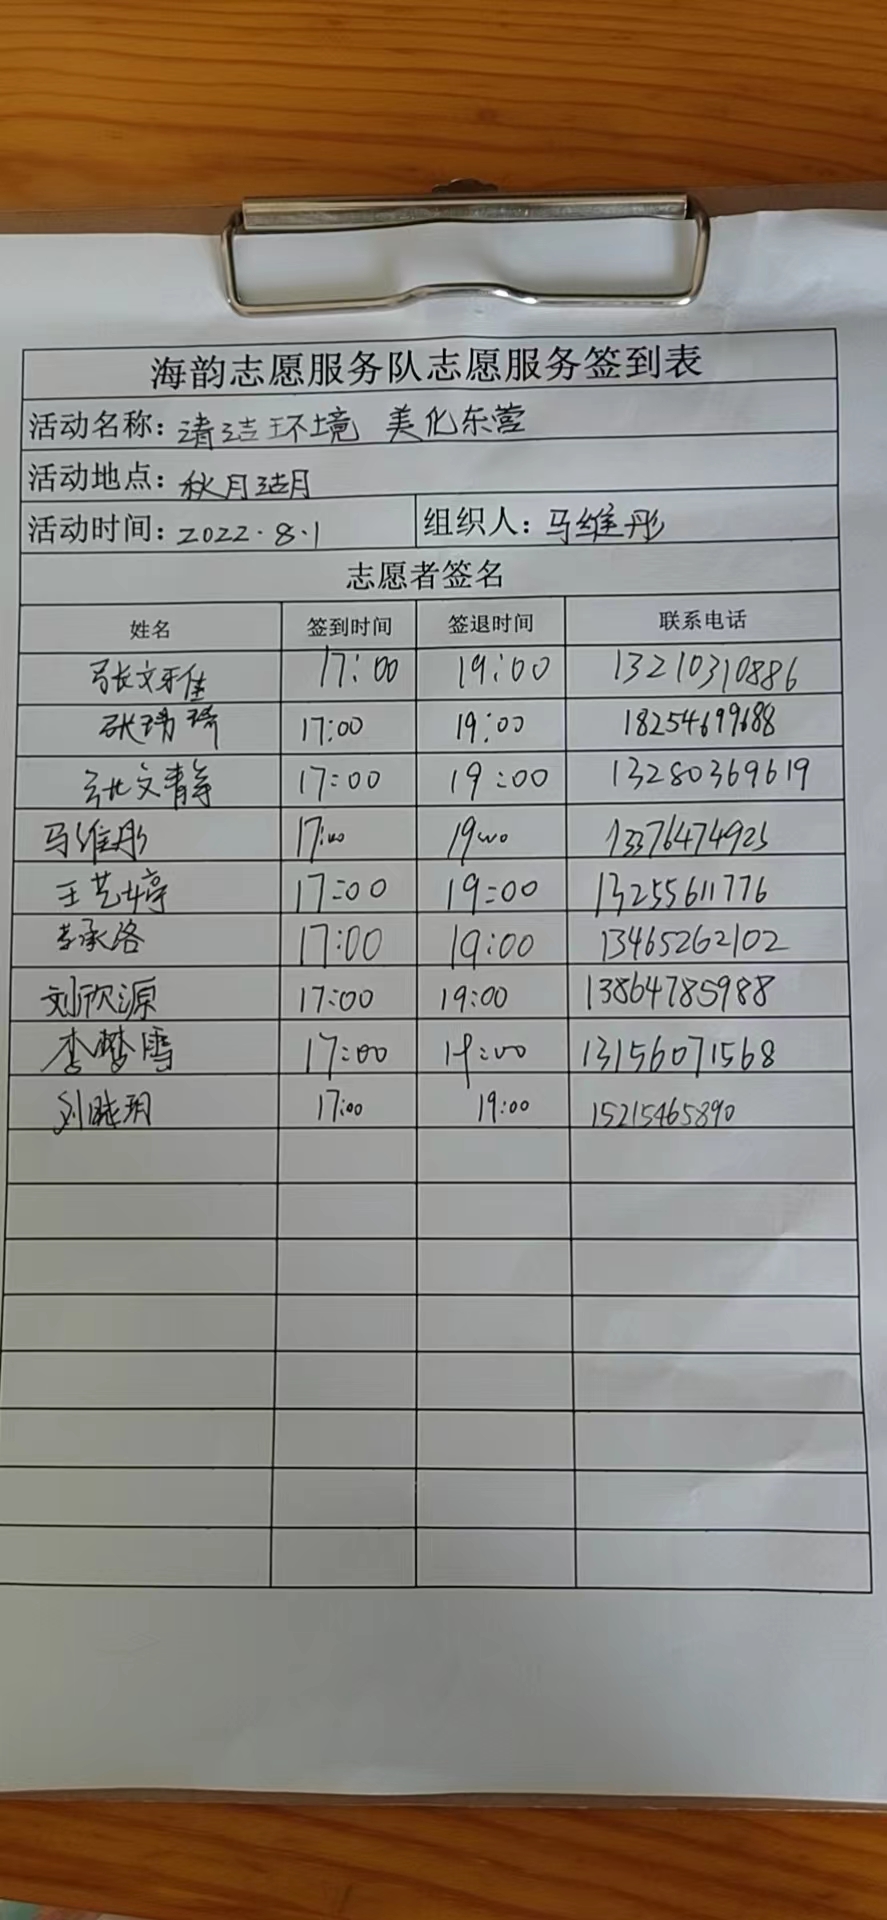 海韵志愿服务队志愿服务签到表
活动名称：清洁环境 美化东营
活动地点：秋月湖
活动时间：2022.8.1 组织人：马维彤
志愿者签名
姓名 签到时间 签退时间 联系电话
张文雅 17:00 19:00 13210310886
张琦 17:00 19:00 18254699688
张文静 17:00 19:00 13280369619
马维彤 17:00 19:00 13376474925
王艺婷 17:00 19:00 13255611776
李承洛 17:00 19:00 13465262102
刘欣源 17:00 19:00 13864785988
李梦雪 17:00 19:00 13156071568
刘玥 17:00 19:00 15215465890